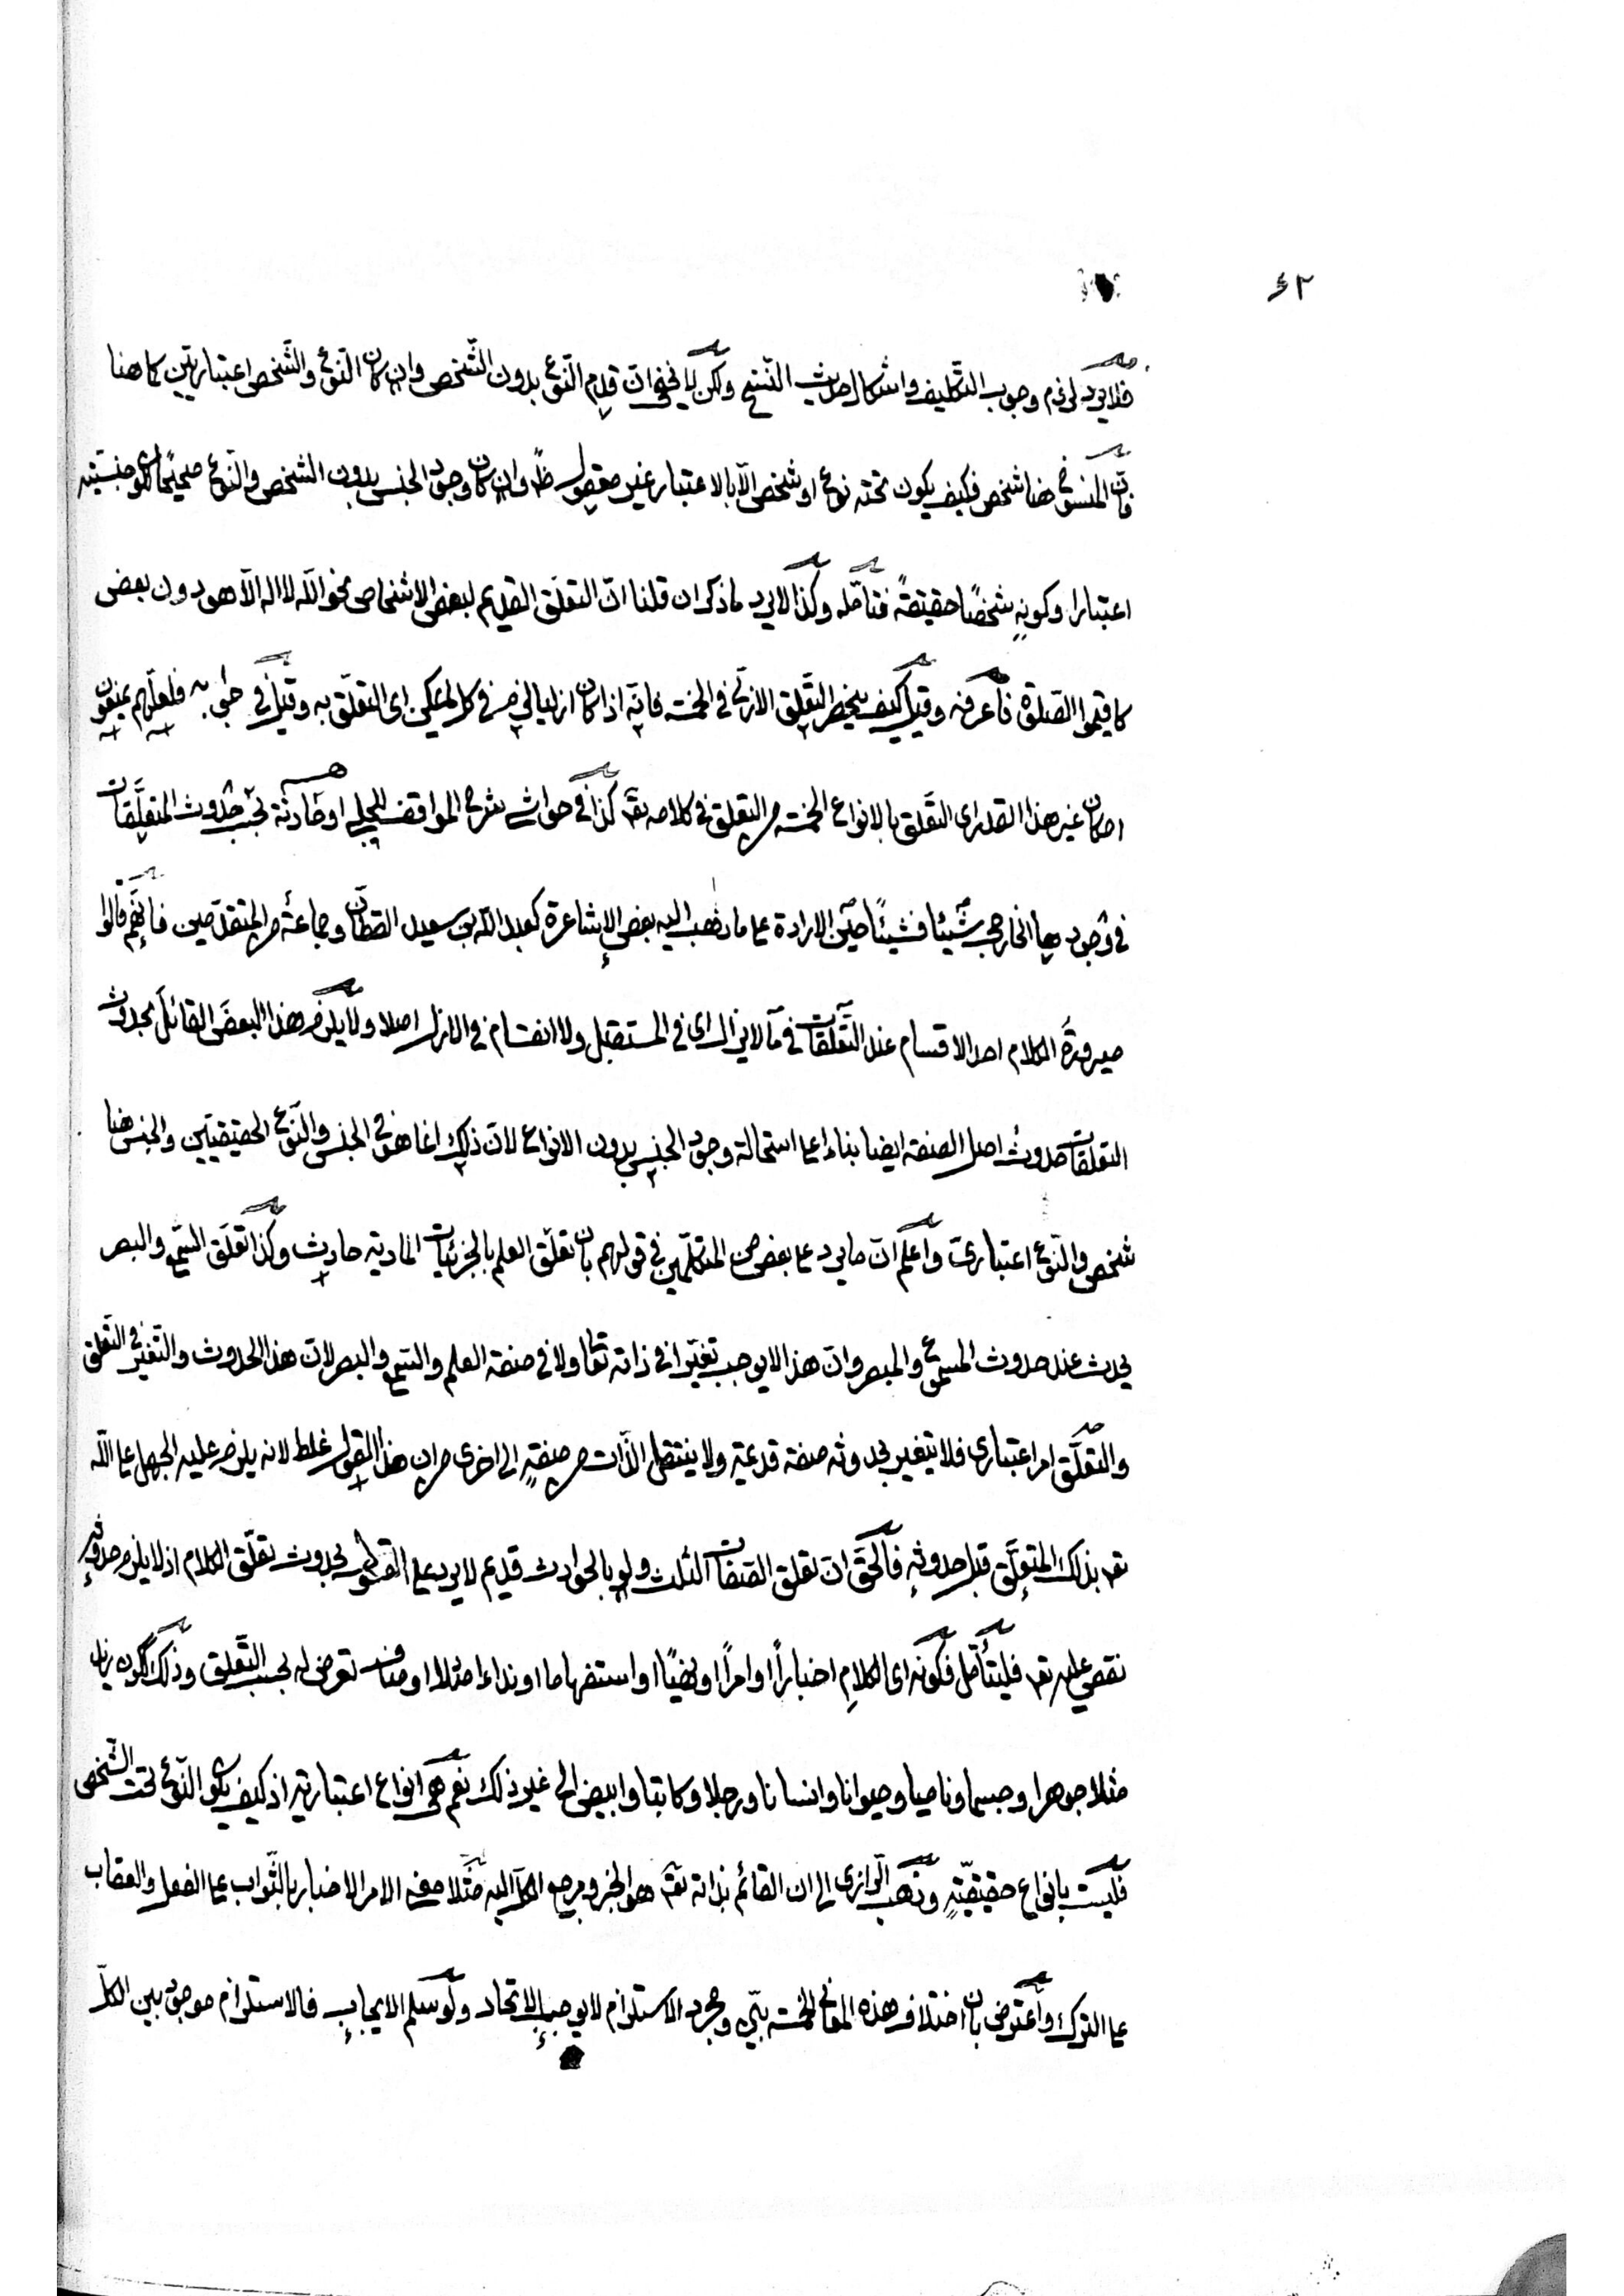 ٤٢
فلا يرد لزوم وجوب التكليف واشكال احاديث النسخ ولكن لا يخفى ان قدم النوع بدون الشخص وان كان النوع والشخص اعتباريتين كما هنا
فان المنسوخ هنا شخص فكيف يكون تحته نوع او شخص الا بالاعتبار غير معقول ظ وان كان وجود الجنس بدون الشخص والنوع صحيحا لكون جنسيته
اعتبارا وكونه شخصًا حقيقةً فتأمله وكذا لا يرد ما ذكر ان قلنا انّ التعلّق القديم لبعض الاشخاص نحو اللّه لا اله الّا هو دون بعض
كاقيموا الصّلوة فاعرفه وقيل كيف ينحصر التّعلق الازلي في الخمسة فانّه اذا كان ازليا في كل لم يمكن اى التعلّق به وقيل في جوابه فلعلّهم يمنعون
امكان غير هذا القدر اى التّعلق بالانواع الخمسة من التعلق في كلامه تع كذا في حواشى شرح المواقف للچلبى او حادثة بحسب حدوث المتعلَّقات
في وجودها الخارجى شيئا فشيئًا حين الارادة على ما ذهب اليه بعض الاشاعرة كعبد اللّه بن سعيد القطّان وجماعة من المتقدّمين فانّهم قالوا
صيرورةُ الكلام احد الاقسام عند التّعلّقات في ما لا يزال اى في المستقبل ولا انقسام في الازل اصلا ولا يلزم هذا البعضَ القائلَ بحدوث
التعلقات حدوثُ اصل الصفة ايضا بناء على استحالة وجود الجنس بدون الانواع لانّ ذلك انما هو في الجنس والنّوع الحقيقيّين والجنس هنا
شخص والنّوع اعتبارىّ واعلم انّ ما يرد على بعض من المتكلّمين في قولهم بان تعلّق العلم بالجزئيات المادية حادث وكذا تعلّق السّمع والبصر
يحدث عند حدوث المسموع والمبصر وانّ هذا لا يوجب تغيّرا في ذاته تعالى ولا في صفة العلم والسّمع والبصر لانّ هذا الحدوث والتّغيّر في التّعلق
والتّعلّق امر اعتبارى فلا تتغير بحدوثه صفة قديمة ولا ينتقل الذّات من صفةٍ الى اخرى من ان هذا القول غلط لانه يلزم عليه الجهل على اللّه
تع بذلك المتعلَّق قبل حدوثه فالحقّ انّ تعلق الصّفات الثلث ولو بالحوادث قديم لا يرد على القول بحدوث تعلّق الكلام اذ لا يلزم من حدوثه
نقص عليه تع فليتأمل فكونه اى الكلامِ اخباراً او امراً او نهيًا او استفهاما او نداءا مثلا اوصاف تعرض له بحسب التّعلق وذلك ككون زيد
مثلا جوهرا وجسما وناميا وحيوانا وانسانا ورجلا وكاتبا وابيض الى غير ذلك نعم هى انواع اعتبارية اذ كيف يكون النّوع تحت الشّخص
فليست بانواع حقيقيّةٍ وذهب الرّازى الى ان القائم بذاته تع هو الخبر ومرجع الكل اليه مثلا معنى الامر الاخبار بالثّواب على الفعل والعقاب
على الترك واعترض بان اختلاف هذه المعانى الخمسة بيّن ومجرد الاستلزام لا يوجب الاتحاد ولو سلم الايجاب فالاستلزام موجود بين الكلّ